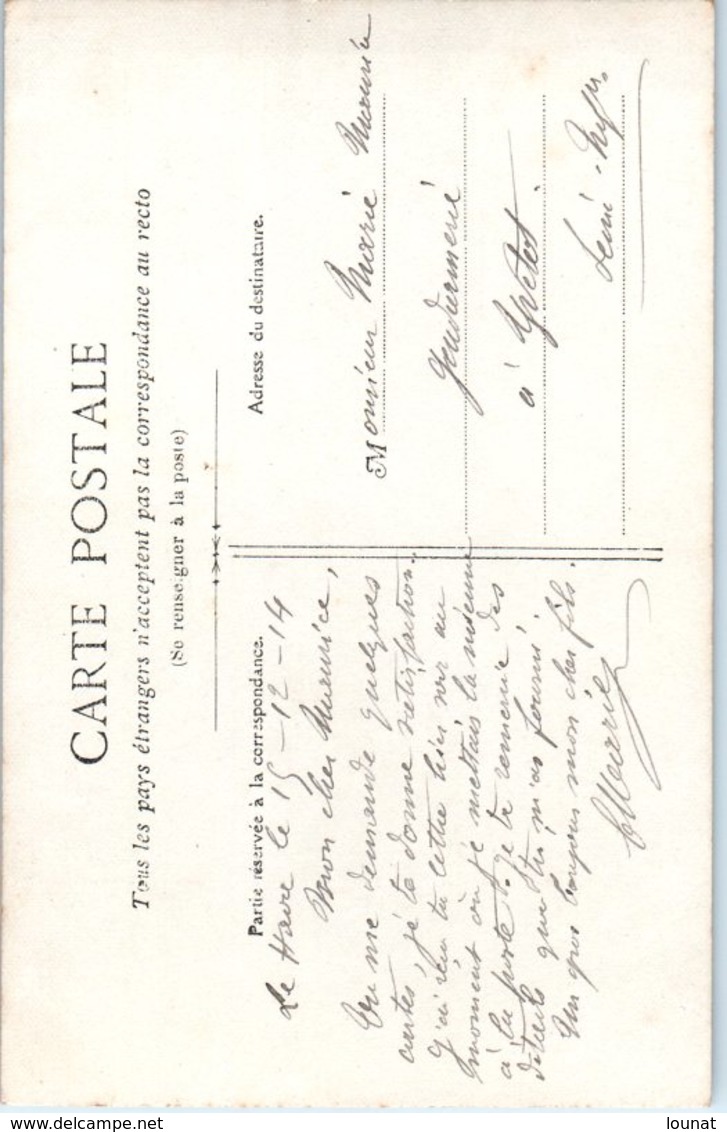 CARTE POSTALE
Tous les pays étrangers n'acceptent pas la correspondance au recto
(Se renseigner à la poste)
Partie réservée à la correspondance.
Le Havre le 15-12-14
Mon cher Maurice,
Tu me demande quelques
cartes, je te donne satisfaction.
J'ai reçu ta lettre hier soir au
moment où je mettais la mienne
à la poste. Je te remercie des
détails que tu m'as fourni.
Un gros toujours mon cher fils.
Adresse du destinataire.
Monsieur Marié Maurice
Gendarmerie
à Yvetot
Seine Infre
delcampe.net
lounat